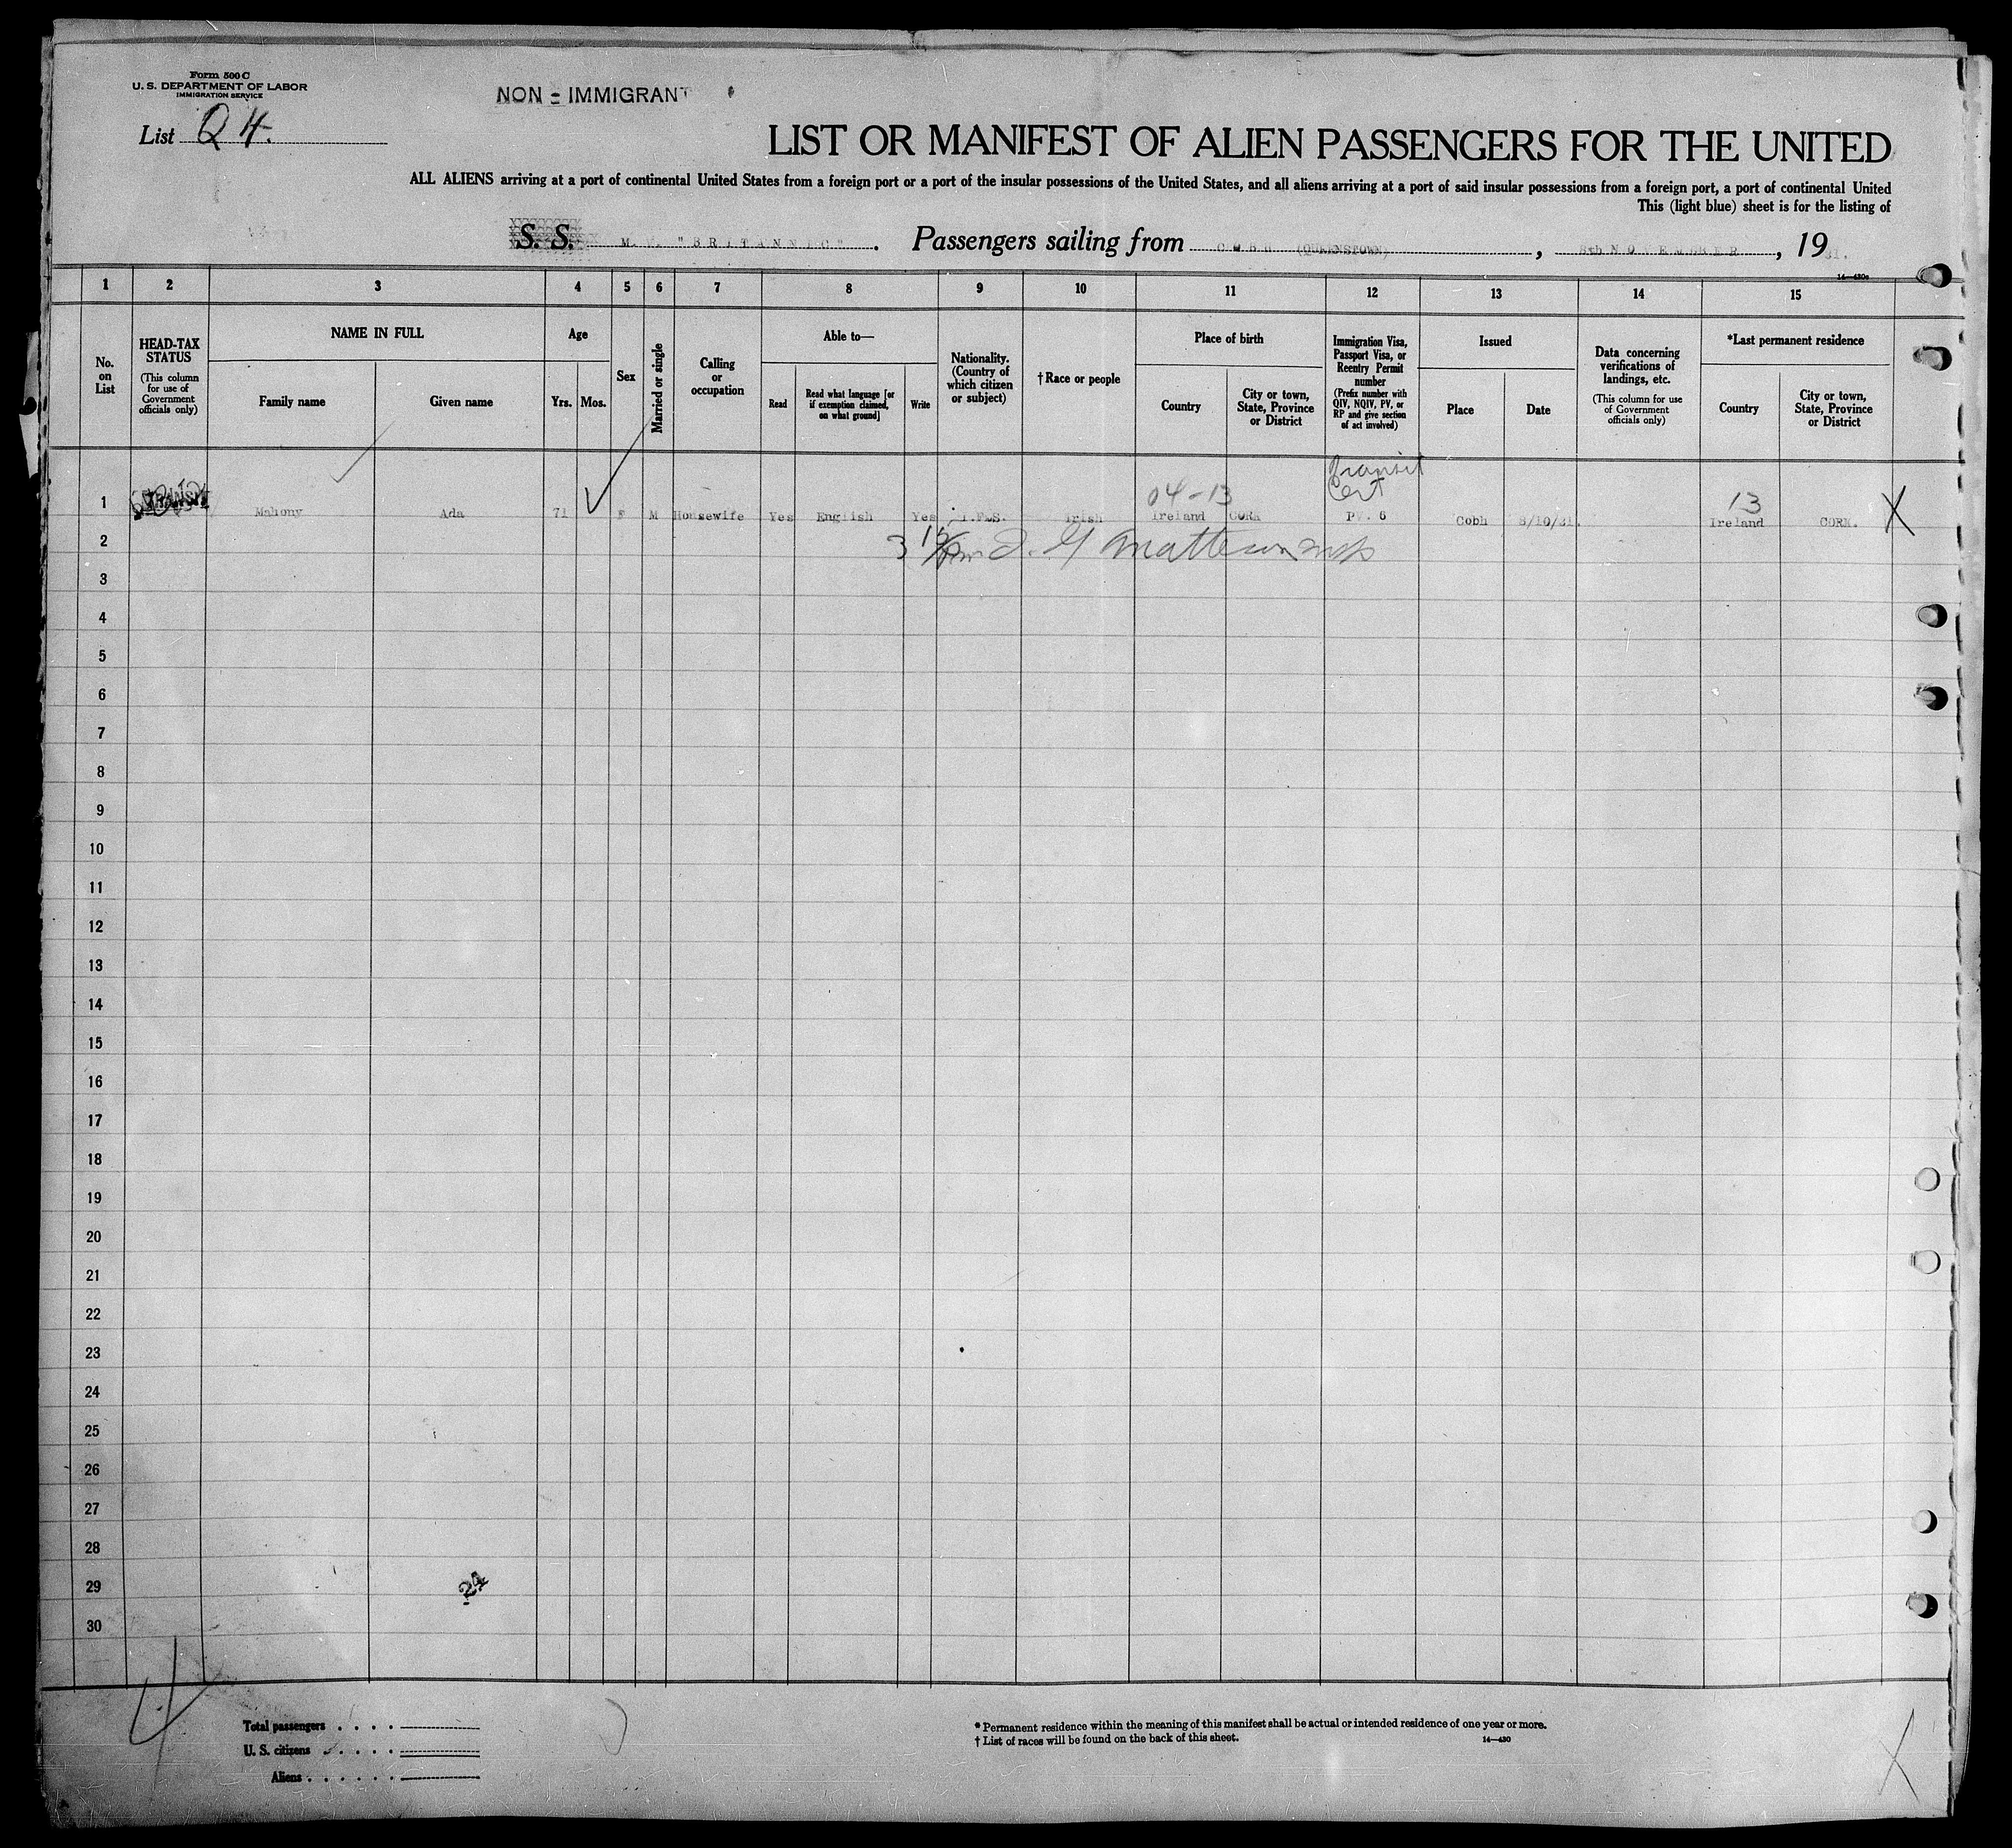 Form 500 C
U. S. DEPARTMENT OF LABOR
IMMIGRATION SERVICE
NON = IMMIGRANT
List Q 4.
LIST OR MANIFEST OF ALIEN PASSENGERS FOR THE UNITED
ALL ALIENS arriving at a port of continental United States from a foreign port or a port of the insular possessions of the United States, and all aliens arriving at a port of said insular possessions from a foreign port, a port of continental United
This (light blue) sheet is for the listing of
S. S. M. V. "BRITANNIC". Passengers sailing from COBH (QUEENSTOWN), 8th NOVEMBER, 1931.
14—430c
1 2 3 4 5 6 7 8 9 10 11 12 13 14 15
No. on List
HEAD-TAX STATUS
(This column for use of Government officials only)
NAME IN FULL
Family name Given name
Age
Yrs. Mos.
Sex
Married or single
Calling or occupation
Able to—
Read
Read what language [or if exemption claimed, on what ground]
Write
Nationality. (Country of which citizen or subject)
† Race or people
Place of birth
Country
City or town, State, Province or District
Immigration Visa, Passport Visa, or Reentry Permit number
(Prefix number with QIV, NQIV, PV, or RP and give section of act involved)
Issued
Place Date
Data concerning verifications of landings, etc.
(This column for use of Government officials only)
*Last permanent residence
Country
City or town, State, Province or District
Transit
Cert
04-13
13
1 TRANSIT Mahony Ada 71 F M Housewife Yes English Yes I.F.S. Irish Ireland CORK PV. 6 Cobh 8/10/31. Ireland CORK. X
2
3
4
5
6
7
8
9
10
11
12
13
14
15
16
17
18
19
20
21
22
23
24
25
26
27
28
29
24
30
Total passengers
U. S. citizens
Aliens
* Permanent residence within the meaning of this manifest shall be actual or intended residence of one year or more.
† List of races will be found on the back of this sheet.
14—430
X